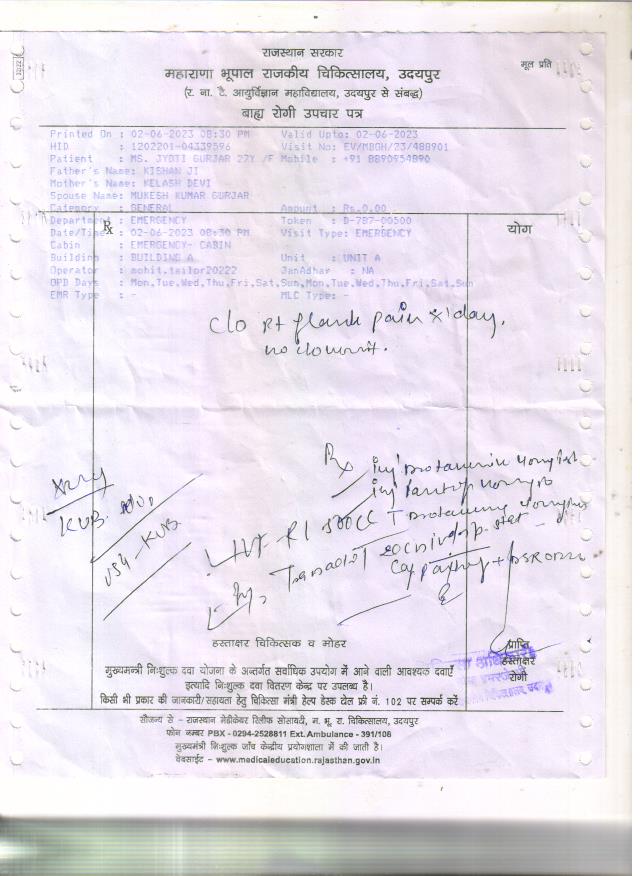 राजस्थान सरकार
महाराणा भूपाल राजकीय चिकित्सालय, उदयपुर
मूल प्रति
(र. ना. टै. आयुर्विज्ञान महाविद्यालय, उदयपुर से संबद्ध)
बाह्य रोगी उपचार पत्र
Printed On : 02-06-2023 08:30 PM Valid Upto: 02-06-2023
HID : 1202201-04339596 Visit No: EV/MBGH/23/488901
Patient : MS. JYOTI GURJAR 27Y /F Mobile : +91 8890954890
Father's Name: KISHAN JI
Mother's Name: KELASH DEVI
Spouse Name: MUKESH KUMAR GURJAR
Category : GENERAL Amount : Rs.0.00
Department : EMERGENCY Token : D-787-00500
Rx
योग
Date/Time : 02-06-2023 08:30 PM Visit Type: EMERGENCY
Cabin : EMERGENCY- CABIN
Building : BUILDING A Unit : UNIT A
Operator : mohit.tailor20222 JanAdhar : NA
OPD Days : Mon,Tue,Wed,Thu,Fri,Sat,Sun,Mon,Tue,Wed,Thu,Fri,Sat,Sun
EMR Type : - MLC Type: -
c/o Rt flank pain x 1 day.
no c/o vomit.
Rx
Xray
KUB
USG - KUB
हस्ताक्षर चिकित्सक व मोहर
प्राप्ति
हस्ताक्षर
रोगी
मुख्यमन्त्री निःशुल्क दवा योजना के अन्तर्गत सर्वाधिक उपयोग में आने वाली आवश्यक दवाएँ
इत्यादि निःशुल्क दवा वितरण केन्द्र पर उपलब्ध है।
किसी भी प्रकार की जानकारी/सहायता हेतु चिकित्सा मंत्री हेल्प डेस्क टोल फ्री नं. 102 पर सम्पर्क करें
सौजन्य से - राजस्थान मेडीकेयर रिलीफ सोसायटी, म. भू. रा. चिकित्सालय, उदयपुर
फोन नम्बर PBX - 0294-2528811 Ext. Ambulance - 391/108
मुख्यमंत्री निःशुल्क जाँच केन्द्रीय प्रयोगशाला में की जाती है।
वेबसाईट - www.medicaleducation.rajasthan.gov.in